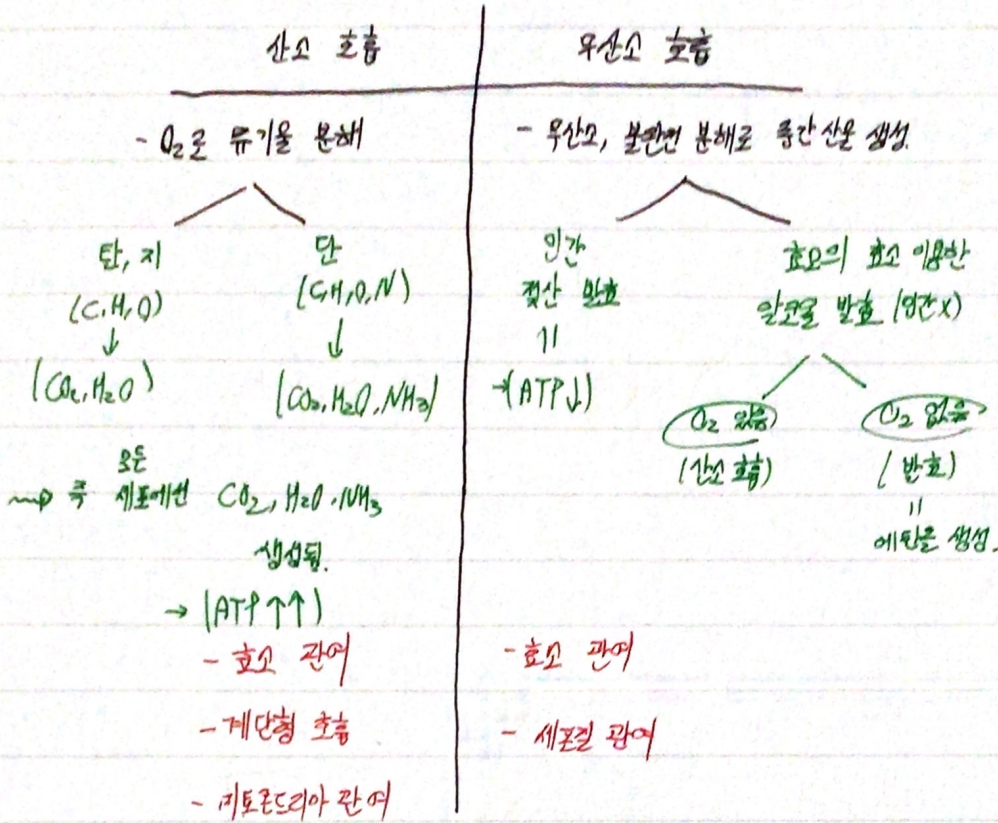 산소 호흡
- O₂로 유기물 분해
탄, 지
(C,H,O)
↓
(CO₂,H₂O)
단
(C,H,O,N)
↓
(CO₂,H₂O,NH₃)
모든
즉 세포에선 CO₂, H₂O, NH₃
생성됨.
→ (ATP↑↑)
- 효소 관여
- 계단형 호흡
- 미토콘드리아 관여
무산소 호흡
- 무산소, 불완전 분해로 중간 산물 생성.
인간
젖산 발효
=
→(ATP↓)
효모의 효소 이용한
알코올 발효 (인간x)
O₂ 있음
(산소 호흡)
O₂ 없음
(발효)
=
에탄올 생성.
- 효소 관여
- 세포질 관여